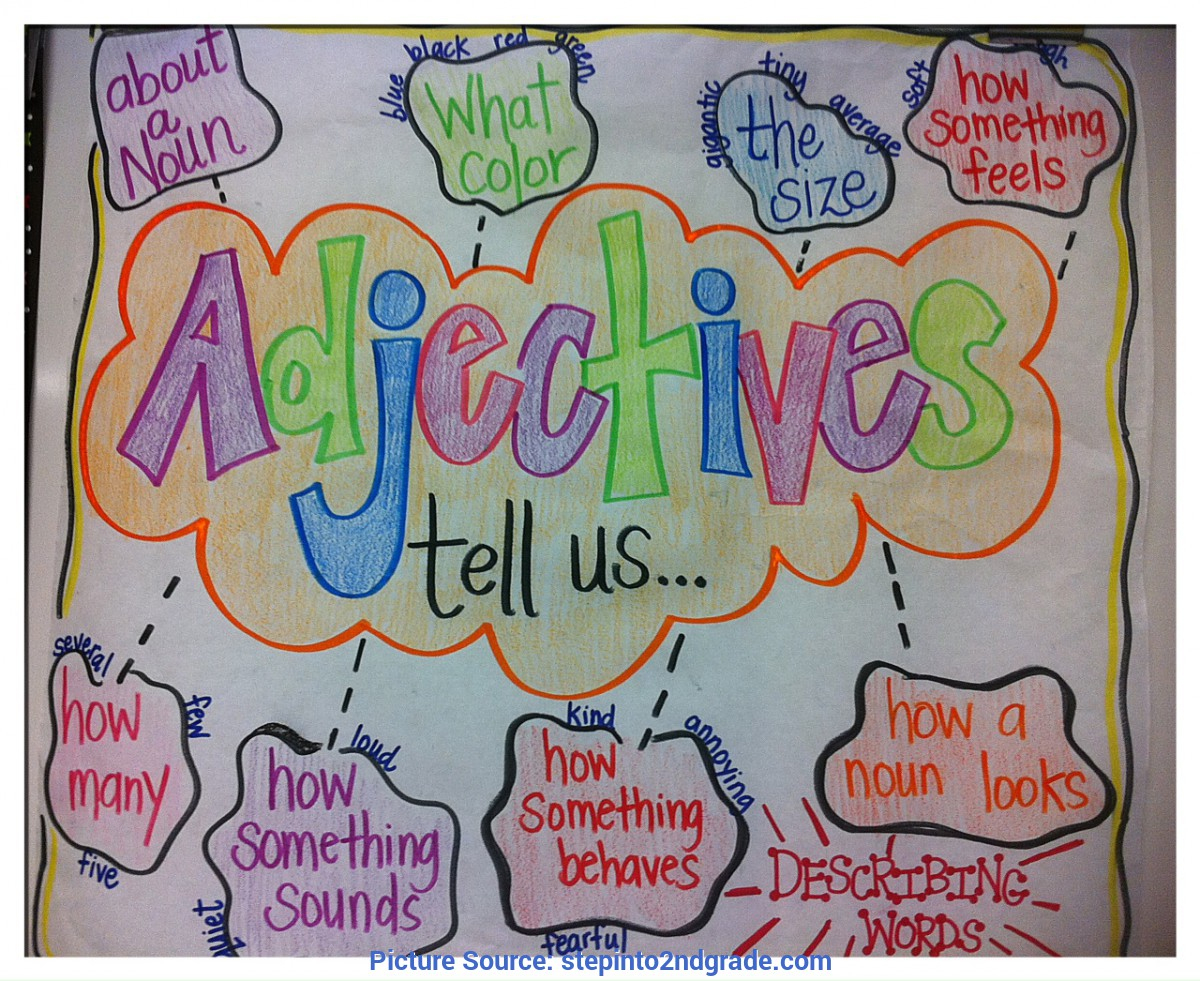 about
a
Noun
blue black red green
What
color
gigantic tiny average
the
size
soft
how
something
feels
Adjectives
tell us...
several
few
how
many
five
loud
how
something
sounds
kind
annoying
how
something
behaves
fearful
how a
noun looks
DESCRIBING
WORDS
Picture Source: stepinto2ndgrade.com